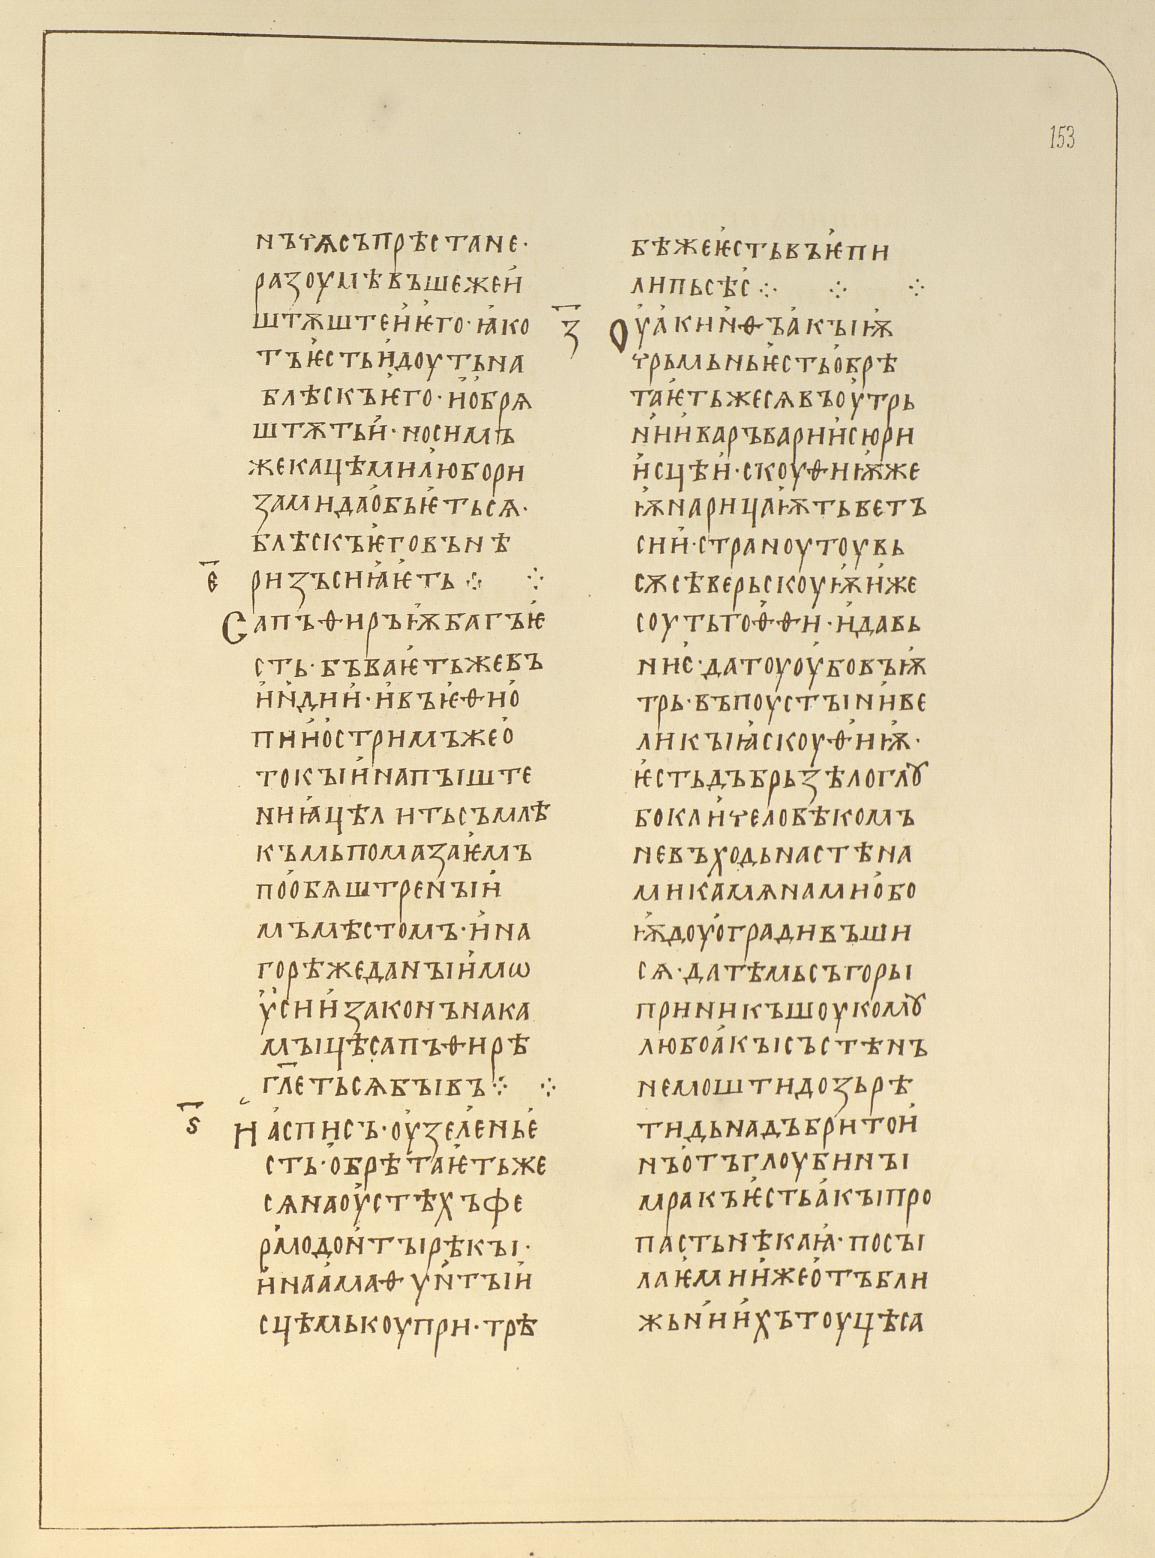 153
нъчѧсъпрѣстане·
разоумѣвъшежеи
штѫштеиѥго·ꙗко
тъѥстьидоутьна
блѣскъѥго·иобрѧ
штѫтьи·носимъ
жекацѣмилюбори
замидаобьѥтьсѧ·
блѣскъѥговънѣ
е҃
ризъсниꙗѥть ⁘ ⁘
Сапъѳиръѭбагъѥ
сть·бъваѥтьжевъ
индии·ивъѥѳио
пииостримъжео
токыинапыште
ниꙗцѣлитьсъмлѣ
къмьпомазаѥмъ
пообѧштреныи
мъмѣстомъ·ина
горѣжеданыимѡ
ѵсиизаконънака
мыцѣсапъѳирѣ
гл҃етьсѧбывъ ⁘ ⁘
ѕ҃
Иасписъ·оузеленье
сть·обрѣтаѥтьже
сѧнаоустѣхъфе
рмодонтырѣкы·
инаамаѳунтыи
сцѣмькоупри·трѣ
бѣжеѥстьвъѥпи
липьсѣс ⁘ ⁘ ⁘
з҃
Оуакинѳъакыѭ
чрьмьньѥстьобрѣ
таѥтьжесѧвъоутрь
нииваръварииисюри
исцѣи·скоуѳиѭже
ѭнарицаѭтьветъ
сии·страноутоувь
сѫсѣверьскоуѭиже
соутьтоѳѳи·идавь
нис·датоуоубовъѭ
трь·въпоустыниве
ликыꙗскоуѳиѭ·
ѥстьдъбрьзѣлоглꙋ
бокаичеловѣкомъ
невъходьнастѣна
микамѧнамиобо
ѭдоуоградивъши
сѧ·датѣмьсъгоры
приникъшоукомꙋ
любоакысъстѣнъ
немоштидозьрѣ
тидьнадъбритои
нъотъглоубины
мракъѥстьакыпро
пастьнѣкаꙗ·посы
лаѥмииижеотъбли
жьниихътоуцѣса